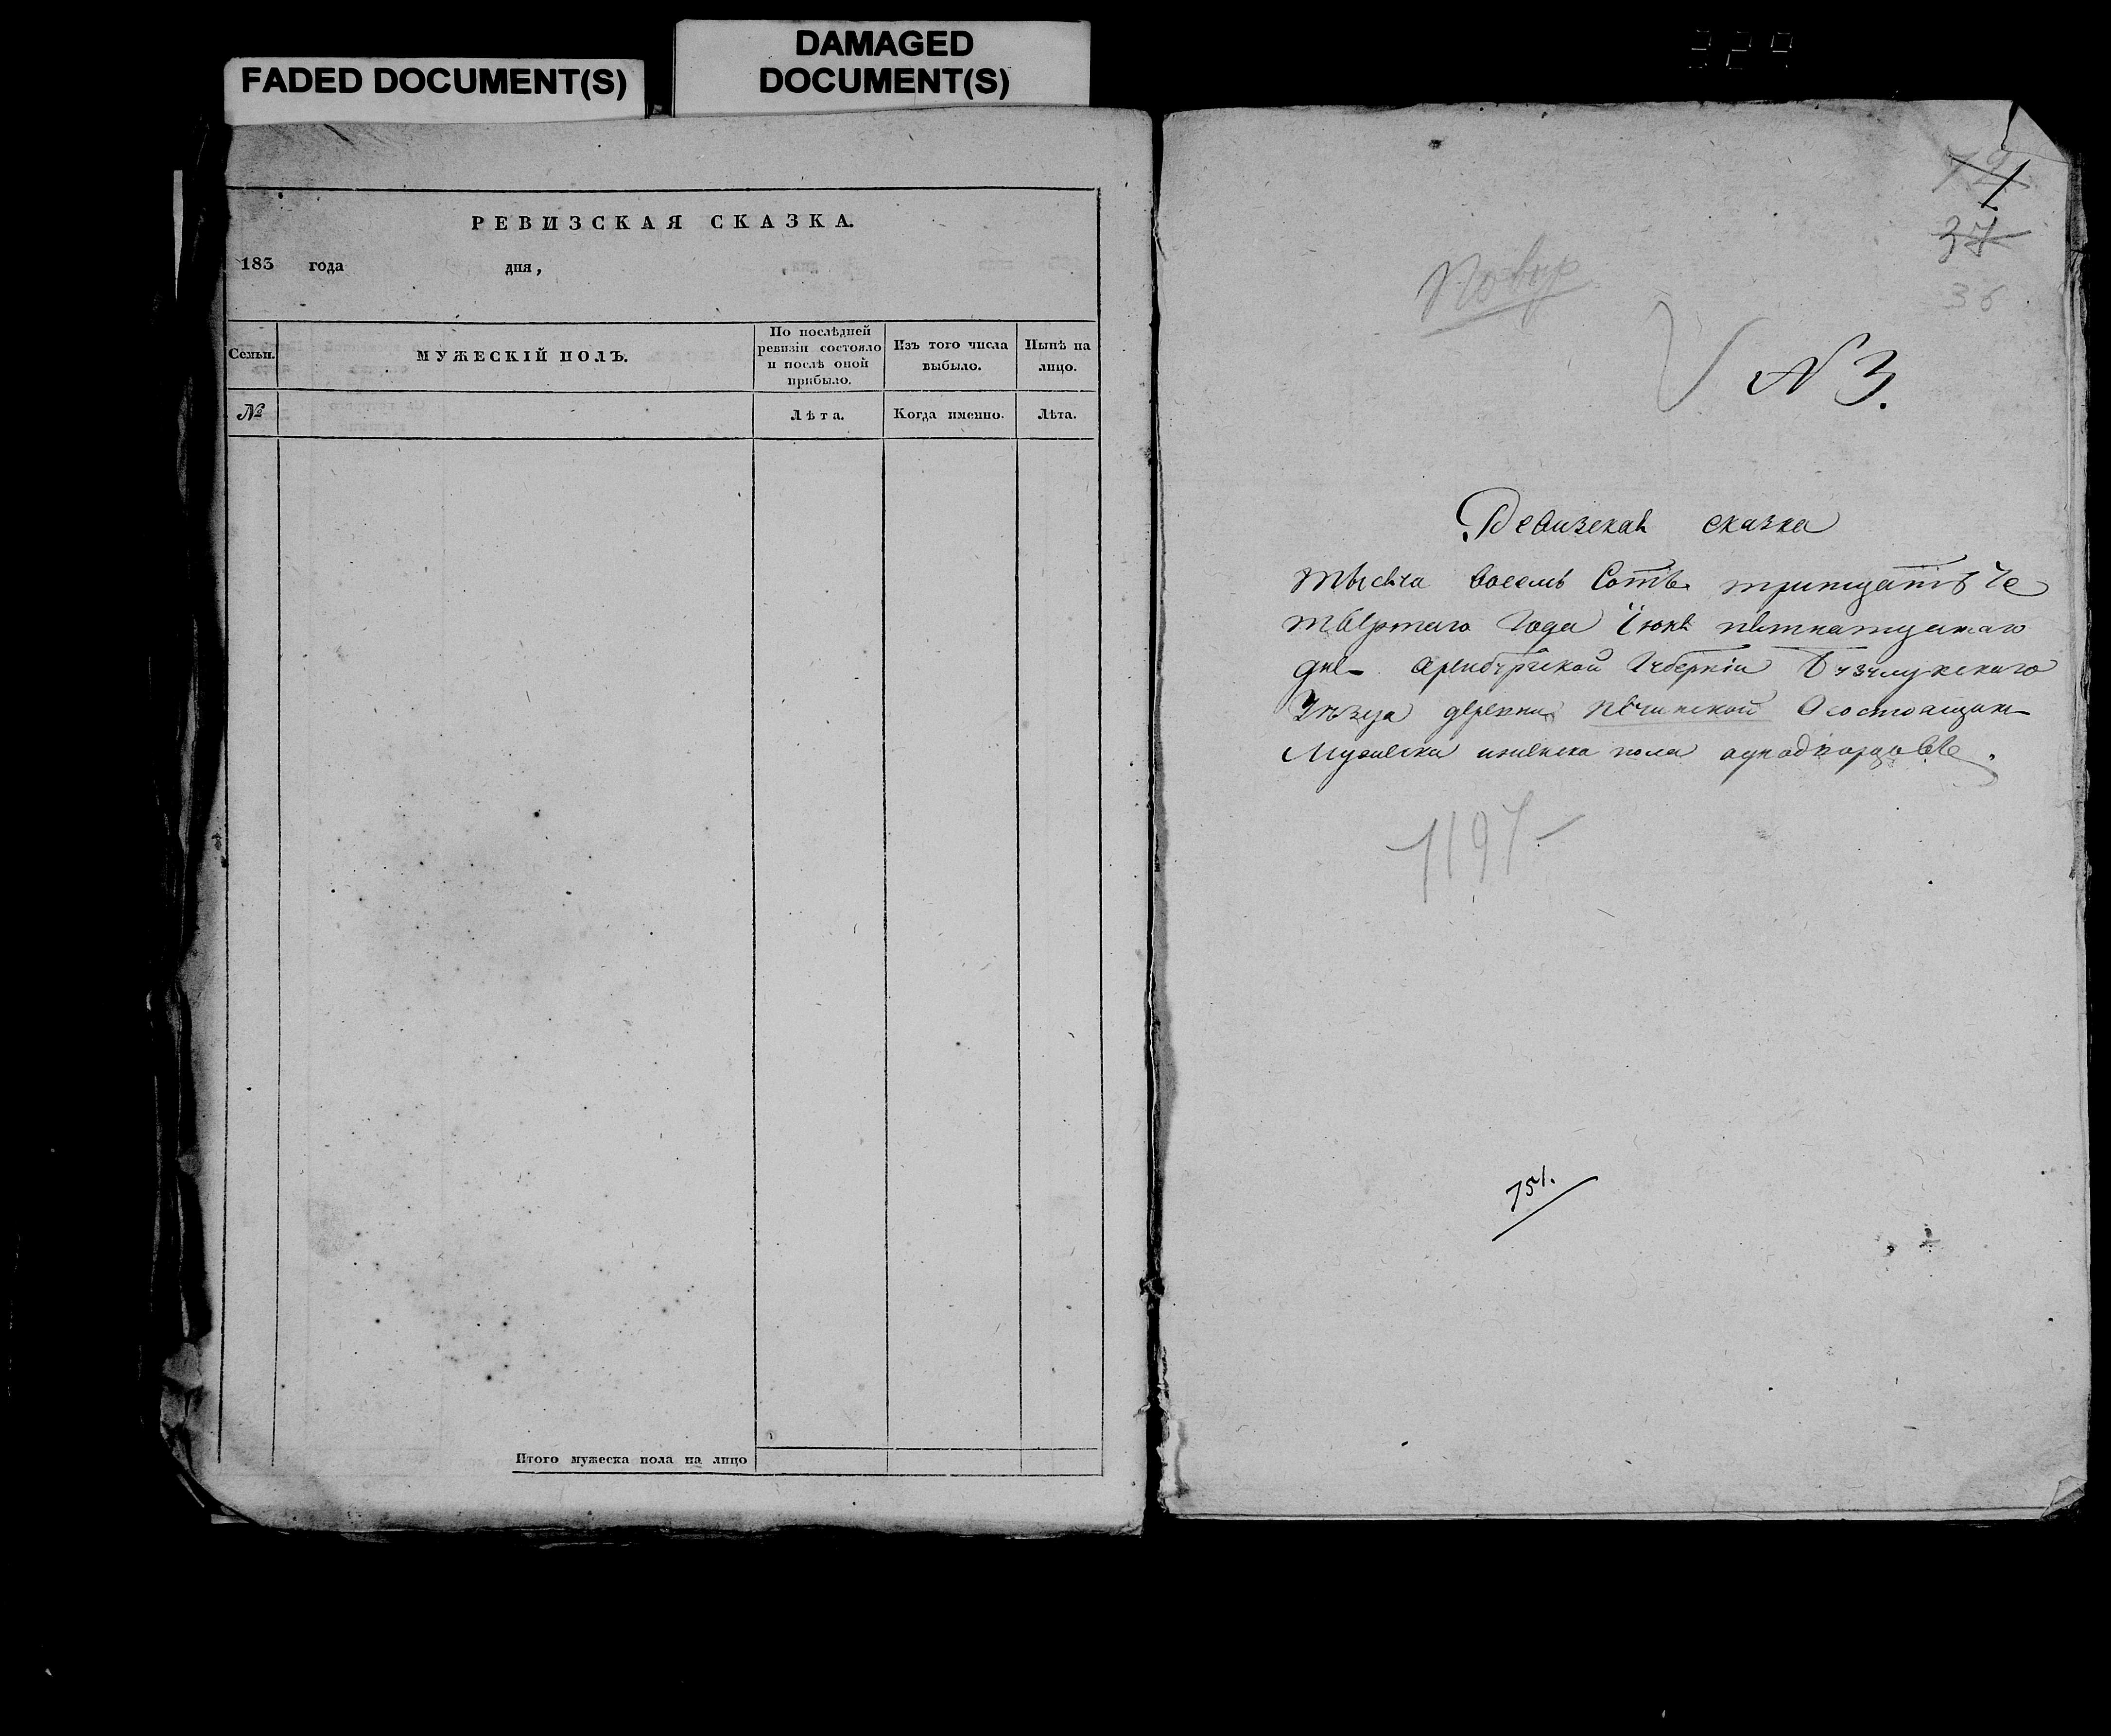 FADED DOCUMENT(S)
DAMAGED
DOCUMENT(S)
РЕВИЗСКАЯ СКАЗКА.
183 года дня,
Семьи.
МУЖЕСКІЙ ПОЛЪ.
По послѣдней
ревизіи состояло
и послѣ оной
прибыло.
Изъ того числа
выбыло.
Нынѣ на
лицо.
№
Лѣта.
Когда именно.
Лѣта.
Итого мужеска пола на лицо
1
37
36
N 3.
Ревизская сказка
тысяча восемь сотъ тритцать че
твертаго года Іюня пятнатцатаго
дня Оренбургской Губерніи Бузулукскаго
уѣзда деревни осостоящих
мужеска иженска пола однодворцовъ
1197
751.